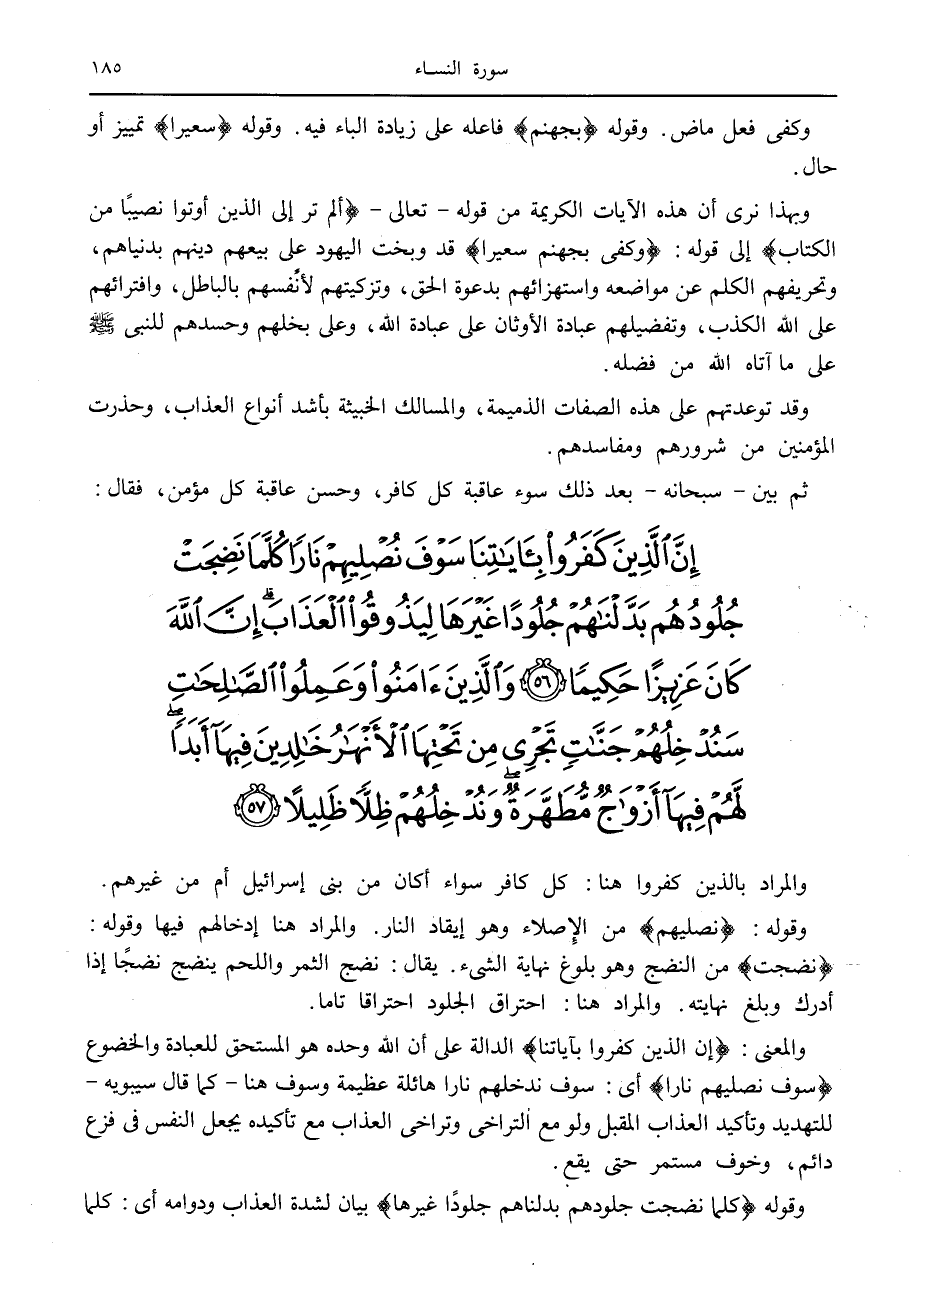 سورة النساء ١٨٥
وكفى فعل ماض. وقوله ﴿بجهنم﴾ فاعله على زيادة الباء فيه. وقوله ﴿سعيرا﴾ تمييز أو
حال.
وبهذا نرى أن هذه الآيات الكريمة من قوله - تعالى - ﴿ألم تر إلى الذين أوتوا نصيبًا من
الكتاب﴾ إلى قوله : ﴿وكفى بجهنم سعيرا﴾ قد وبخت اليهود على بيعهم دينهم بدنياهم،
وتحريفهم الكلم عن مواضعه واستهزائهم بدعوة الحق، وتزكيتهم لأنفسهم بالباطل، وافترائهم
على الله الكذب، وتفضيلهم عبادة الأوثان على عبادة الله، وعلى بخلهم وحسدهم للنبى ﷺ
على ما آتاه الله من فضله.
وقد توعدتهم على هذه الصفات الذميمة، والمسالك الخبيثة بأشد أنواع العذاب، وحذرت
المؤمنين من شرورهم ومفاسدهم.
ثم بين - سبحانه - بعد ذلك سوء عاقبة كل كافر، وحسن عاقبة كل مؤمن، فقال :
إِنَّ ٱلَّذِينَ كَفَرُوا۟ بِـَٔايَـٰتِنَا سَوْفَ نُصْلِيهِمْ نَارًا كُلَّمَا نَضِجَتْ
جُلُودُهُم بَدَّلْنَـٰهُمْ جُلُودًا غَيْرَهَا لِيَذُوقُوا۟ ٱلْعَذَابَ ۗ إِنَّ ٱللَّهَ
كَانَ عَزِيزًا حَكِيمًا ﴿٥٦﴾ وَٱلَّذِينَ ءَامَنُوا۟ وَعَمِلُوا۟ ٱلصَّـٰلِحَـٰتِ
سَنُدْخِلُهُمْ جَنَّـٰتٍ تَجْرِى مِن تَحْتِهَا ٱلْأَنْهَـٰرُ خَـٰلِدِينَ فِيهَآ أَبَدًا ۖ
لَّهُمْ فِيهَآ أَزْوَٰجٌ مُّطَهَّرَةٌ ۖ وَنُدْخِلُهُمْ ظِلًّا ظَلِيلًا ﴿٥٧﴾
والمراد بالذين كفروا هنا : كل كافر سواء أكان من بنى إسرائيل أم من غيرهم.
وقوله : ﴿نصليهم﴾ من الإصلاء وهو إيقاد النار. والمراد هنا إدخالهم فيها وقوله :
﴿نضجت﴾ من النضج وهو بلوغ نهاية الشىء. يقال : نضج الثمر واللحم ينضج نضجًا إذا
أدرك وبلغ نهايته. والمراد هنا : احتراق الجلود احتراقا تاما.
والمعنى : ﴿إن الذين كفروا بآياتنا﴾ الدالة على أن الله وحده هو المستحق للعبادة والخضوع
﴿سوف نصليهم نارا﴾ أى : سوف ندخلهم نارا هائلة عظيمة وسوف هنا - كما قال سيبويه -
للتهديد وتأكيد العذاب المقبل ولو مع التراخى وتراخى العذاب مع تأكيده يجعل النفس فى فزع
دائم، وخوف مستمر حتى يقع.
وقوله ﴿كلما نضجت جلودهم بدلناهم جلودًا غيرها﴾ بيان لشدة العذاب ودوامه أى : كلما